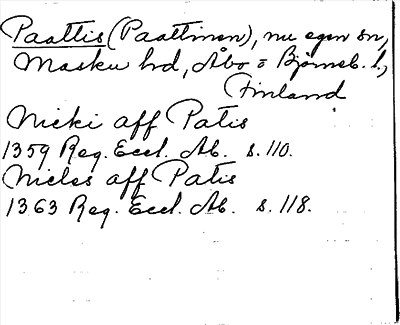 Paattis (Paattinen), nu egen sn,
Masku hd, Åbo = Björneb. l,
Finland
Nicki aff Patis
1359 Reg. Eccl. Ab. s. 110.
Niclis aff Patis
1363 Reg. Eccl. Ab. s. 118.